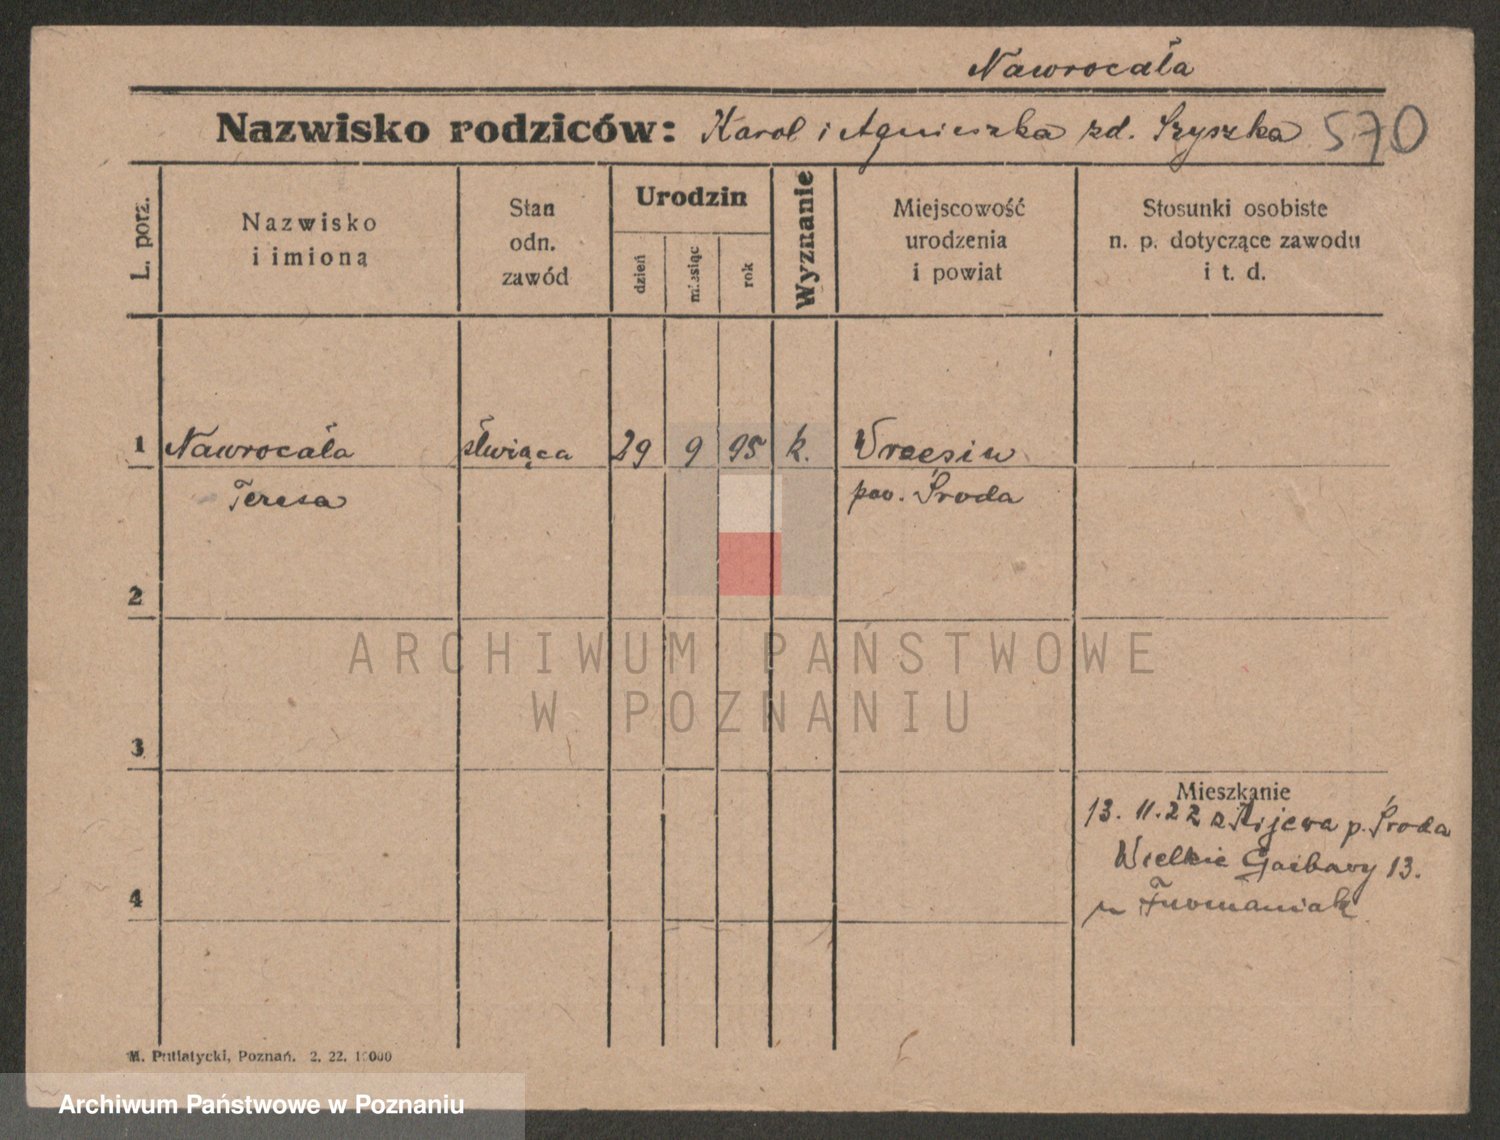 Nawrocała
Nazwisko rodziców: Karol i Agnieszka zd. Szyszka 570
L. porz.
Nazwisko
i imioną
Stan
odn.
zawód
Urodzin
dzień
miesiąc
rok
Wyznanie
Miejscowość
urodzenia
i powiat
Stosunki osobiste
n. p. dotyczące zawodu
i t. d.
1 Nawrocała służąca 29 9 95 k.
Teresa pow. Środa
2
ARCHIWUM PAŃSTWOWE
W POZNANIU
3
Mieszkanie
13. 11. 22 z Kijewa p. Środa
Wielkie Garbary 13.
4
M. Putiatycki, Poznań. 2. 22. 10000
Archiwum Państwowe w Poznaniu